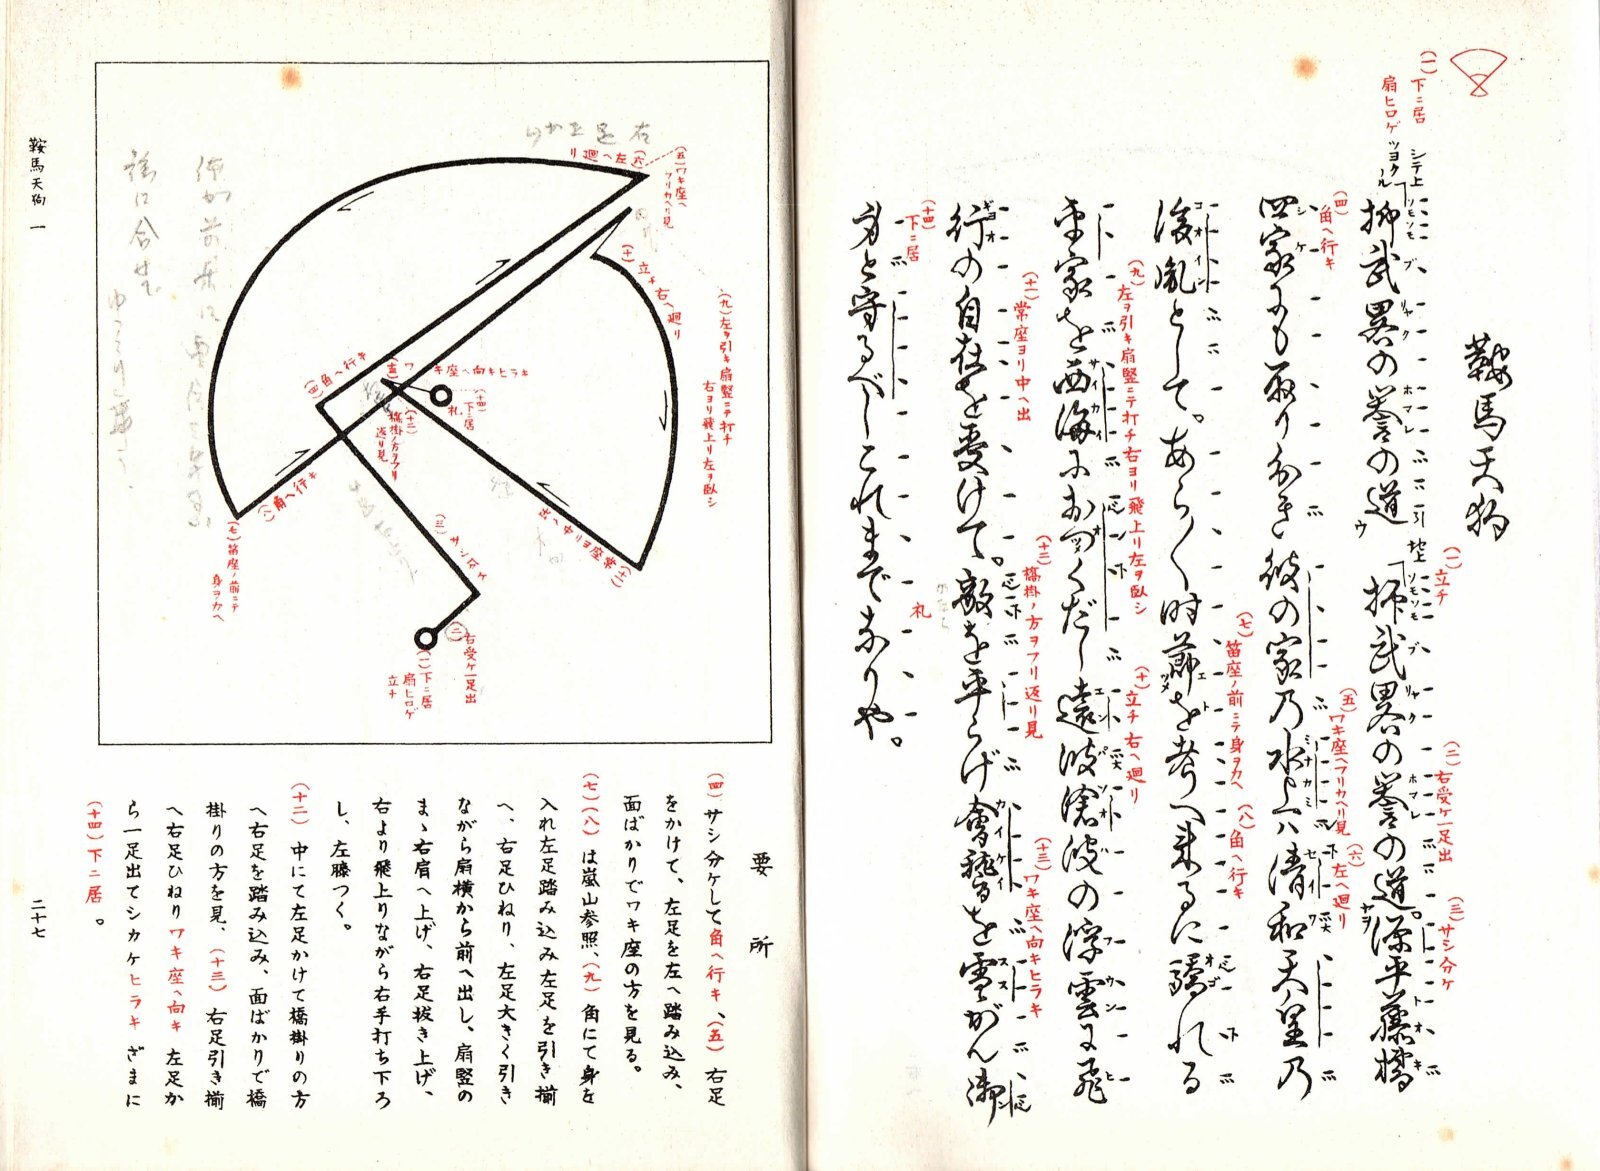 鞍馬天狗
(一)下ニ居
扇ヒロゲ
シテ上 ツヨクル
抑武畧の誉の道 地上 抑武畧の誉の道。源平藤橘
(一)立チ
(二)右受ケ一足出
(三)サシ分ケ
四家にも取り分き彼の家乃水上ハ清和天皇乃
(四)角ヘ行キ
(五)ワキ座ヘフリカヘリ見
(六)左ヘ廻リ
後胤として。あら〱時節を考へ来るに驕れる
(七)笛座ノ前ニテ身ヲカヘ
(八)角ヘ行キ
平家を西海におつくだし遠波滄波の浮雲に飛
(九)左ヲ引キ扇竪ニテ打チ右ヨリ飛上リ左ヲ臥シ
(十)立チ右ヘ廻リ
行の自在を受けて。敵を平らげ會稽を雪がん御
(十一)常座ヨリ中ヘ出
(十二)橋掛ノ方ヲフリ返リ見
(十三)ワキ座ヘ向キヒラキ
身と守るべしこれまでなりや。
(十四)下ニ居
礼
右足正かけ
(六)左ヘ廻リ
(五)ワキ座ヘ
フリカヘリ見
(十)立チ右ヘ廻リ
(九)左ヲ引キ扇竪ニテ打チ
右ヨリ飛上リ左ヲ臥シ
(四)角ヘ行キ
(十三)ワキ座ヘ向キヒラキ
(十四)下ニ居
礼
(十二)
橋掛ノ方ヲフリ
返リ見
(八)角ヘ行キ
(七)笛座ノ前ニテ
身ヲカヘ
(三)サシ分ケ
(十一)常座ヨリ中ヘ出
(二)右受ケ一足出
(一)下ニ居
扇ヒロゲ
立チ
要所
(四)サシ分ケして角ヘ行キ、(五)右足
をかけて、左足を左へ踏み込み、
面ばかりでワキ座の方を見る。
(七)(八)は嵐山参照、(九)角にて身を
入れ左足踏み込み左足を引き揃
へ、右足ひねり、左足大きく引き
ながら扇横から前へ出し、扇竪の
まゝ右肩へ上げ、右足抜き上げ、
右より飛上りながら右手打ち下ろ
し、左膝つく。
(十二)中にて左足かけて橋掛りの方
へ右足を踏み込み、面ばかりで橋
掛りの方を見、(十三)右足引き揃
へ右足ひねりワキ座ヘ向キ左足か
ら一足出てシカケヒラキざまに
(十四)下ニ居。
鞍馬天狗 一
二十七